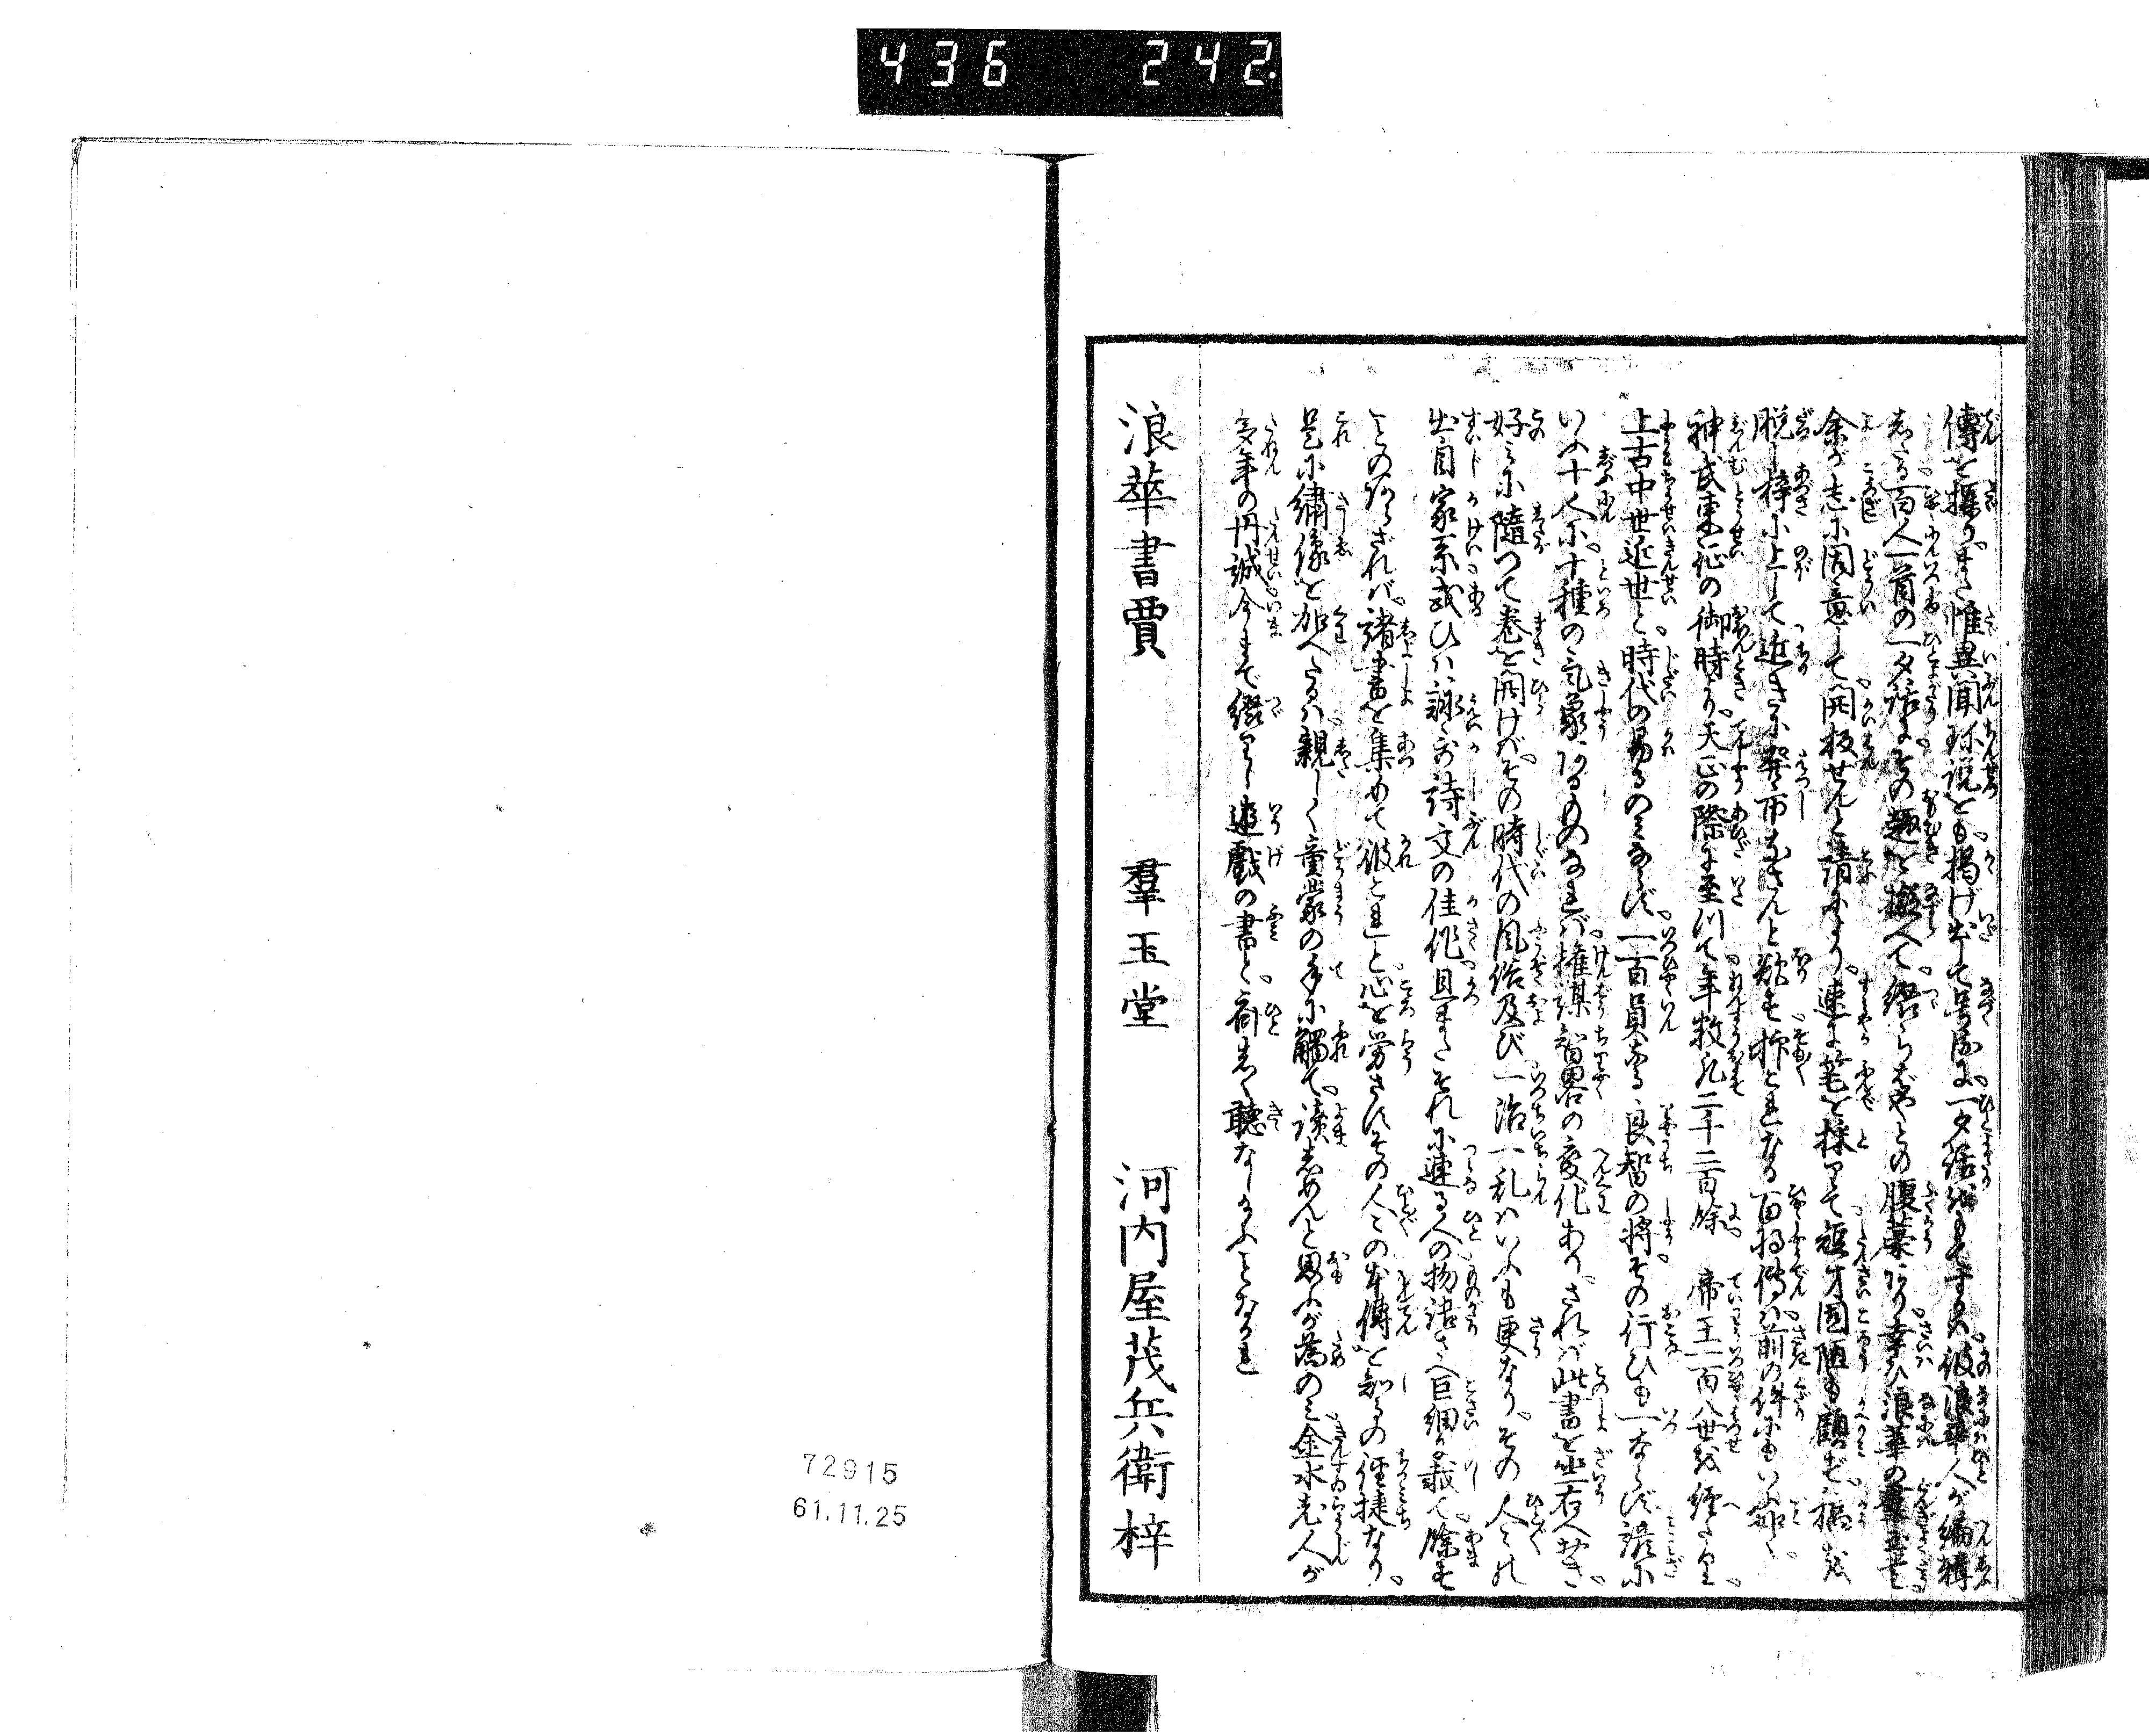 436 242.
傳を探りまた惟異聞珎説をも掲げ出して号るに一夕話をもてす是彼浪華人が編輯
志たる百人一首の一夕話にその趣を擬へて綴らばやとの腹藁あり幸ひ浪華の羣玉堂
余が志に同意して開板せんと請ふにより速に筆を採りて短才固陋も顧ず稿を
脱し梓に上して近きに發市なさんと欲す抑これなる百将傳は前の件にもいふ如く
神武東征の御時より天正の際に至りて年数凡二千二百餘 帝王一百八世を經たり
上古中世近世と時代の易るのみならず一百員なる良智の将その行ひも一ならず諺に
いふ十人に十種の氣象あるものなれば權謀智畧の変化ありされば此書を坐右へおき
好みに隨つて巻を開けばその時代の風俗及び一治一乱はいふも更なりその人々の
出自家系或ひは詠歌詩文の佳作且またそれに連る人の物語さへ巨細に載て餘す
ことのあらざれば諸書を集めて彼これと心を労さずその人々の本傳を知るの径捷なり
是に繍像を加へたるは親しく童蒙の手に觸て讀しめんと思ふが為のみ金水老人が
多年の丹誠今まで綴りし遊戯の書と齊しく聴なし給ふことなかれ
浪華書賈 羣玉堂 河内屋茂兵衛梓
72915
61.11.25